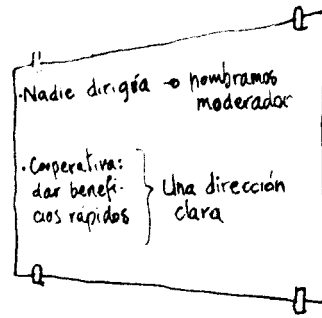 · Nadie dirigía → nombramos
moderador
· Cooperativa:
dar benefi-
cios rápidos
Una dirección
clara